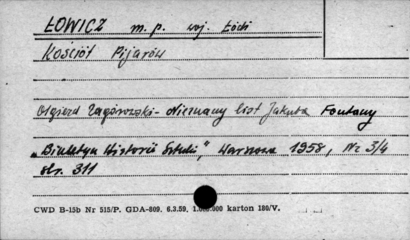 ŁOWICZ m. p. woj. Łódź
Kościół Pijarów
Olgierd Zagórowski - Nieznany list Jakuba Fontany
„Biuletyn Historii Sztuki", Warszawa 1958, Nr 3/4
str. 311
CWD B-15b Nr 515/P. GDA-809, 6.3.59, karton 180/V.